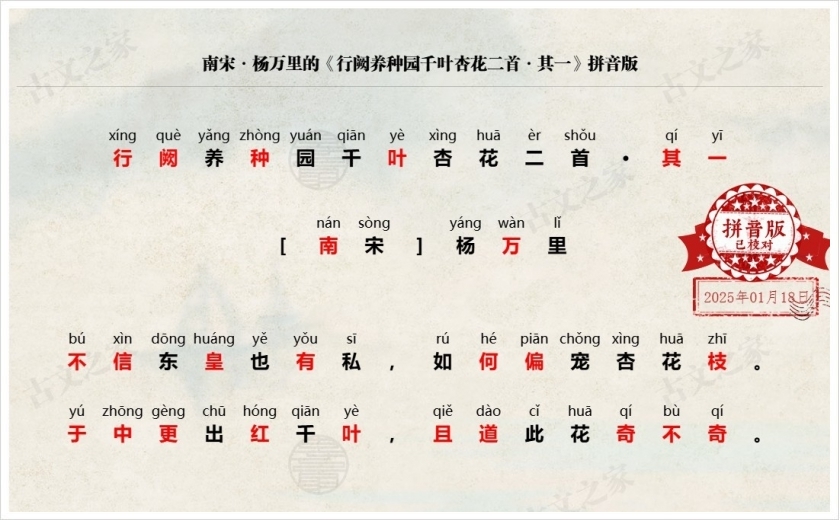 南宋·杨万里的《行阙养种园千叶杏花二首·其一》拼音版
xíng què yǎng zhòng yuán qiān yè xìng huā èr shǒu qí yī
行阙养种园千叶杏花二首·其一
nán sòng yáng wàn lǐ
[南宋]杨万里
拼音版
已校对
2025年01月18日
bú xìn dōng huáng yě yǒu sī rú hé piān chǒng xìng huā zhī
不信东皇也有私，如何偏宠杏花枝。
yú zhōng gèng chū hóng qiān yè qiě dào cǐ huā qí bù qí
于中更出红千叶，且道此花奇不奇。
古文之家
古文之家
古文之家
古文之家
古文之家
古文之家